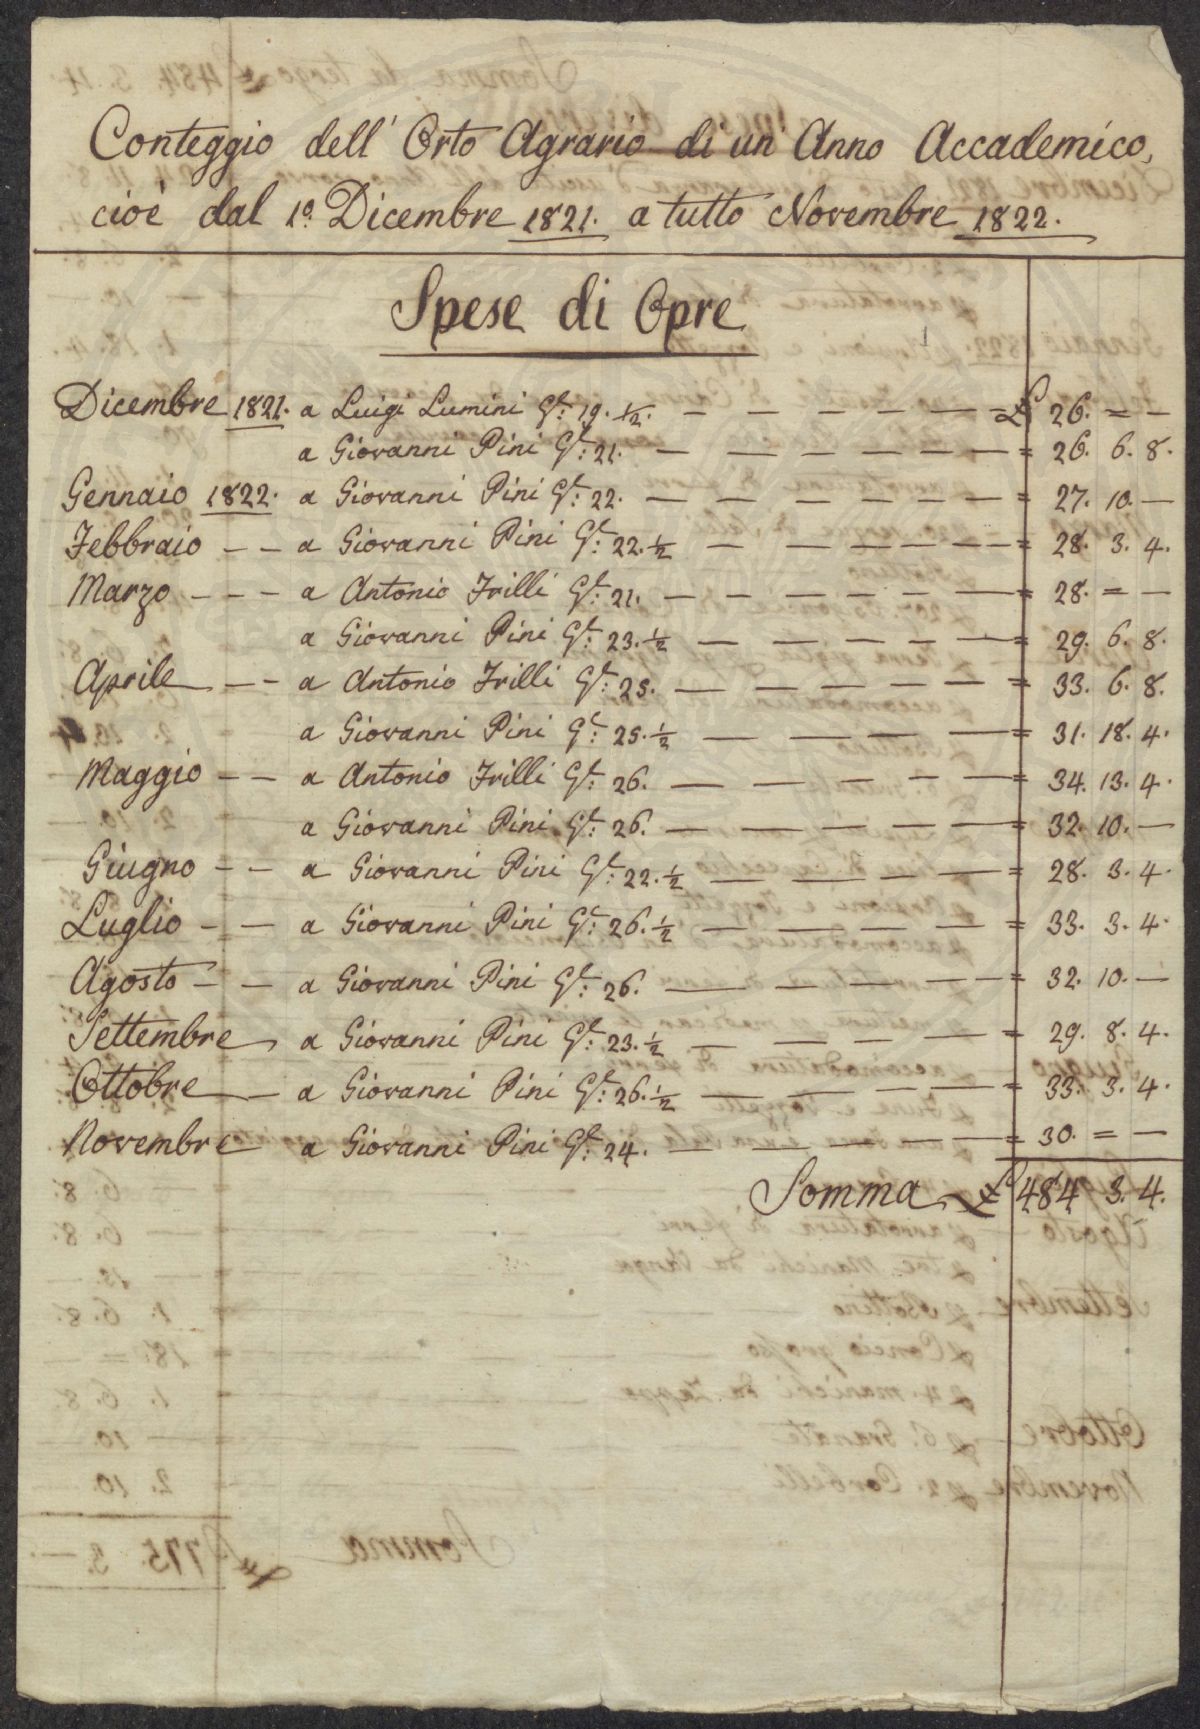 Conteggio dell' Orto Agrario di un' Anno Accademico,
cioè dal 1º. Dicembre 1821. a tutto Novembre 1822.
Spese di Opre
Dicembre 1821. a Luigi Lumini Gte: 19. 1/2. — — — — — — £ 26. = —
a Giovanni Pini Gte: 21. — — — — — — — = 26. 6. 8.
Gennaio 1822. a Giovanni Pini Gte: 22. — — — — — — — = 27. 10. —
Febbraio — — a Giovanni Pini Gte: 22. 1/2 — — — — — — = 28. 3. 4.
Marzo — — — a Antonio Frilli Gte: 21. — — — — — — — = 28. = —
a Giovanni Pini Gte: 23. 1/2 — — — — — = 29. 6. 8.
Aprile — — a Antonio Frilli Gte: 25. — — — — — — = 33. 6. 8.
a Giovanni Pini Gte: 25. 1/2 — — — — — = 31. 18. 4.
Maggio — — a Antonio Frilli Gte: 26. — — — — — = 34. 13. 4.
a Giovanni Pini Gte: 26. — — — — — — = 32. 10. —
Giugno — — a Giovanni Pini Gte: 22. 1/2 — — — — — = 28. 3. 4.
Luglio — — a Giovanni Pini Gte: 26. 1/2 — — — — — = 33. 3. 4.
Agosto — — a Giovanni Pini Gte: 26. — — — — — — = 32. 10. —
Settembre a Giovanni Pini Gte: 23. 1/2 — — — — — = 29. 8. 4.
Ottobre — a Giovanni Pini Gte: 26. 1/2 — — — — — = 33. 3. 4.
Novembre a Giovanni Pini Gte: 24. — — — — — — = 30. = —
Somma £ 484 3. 4.